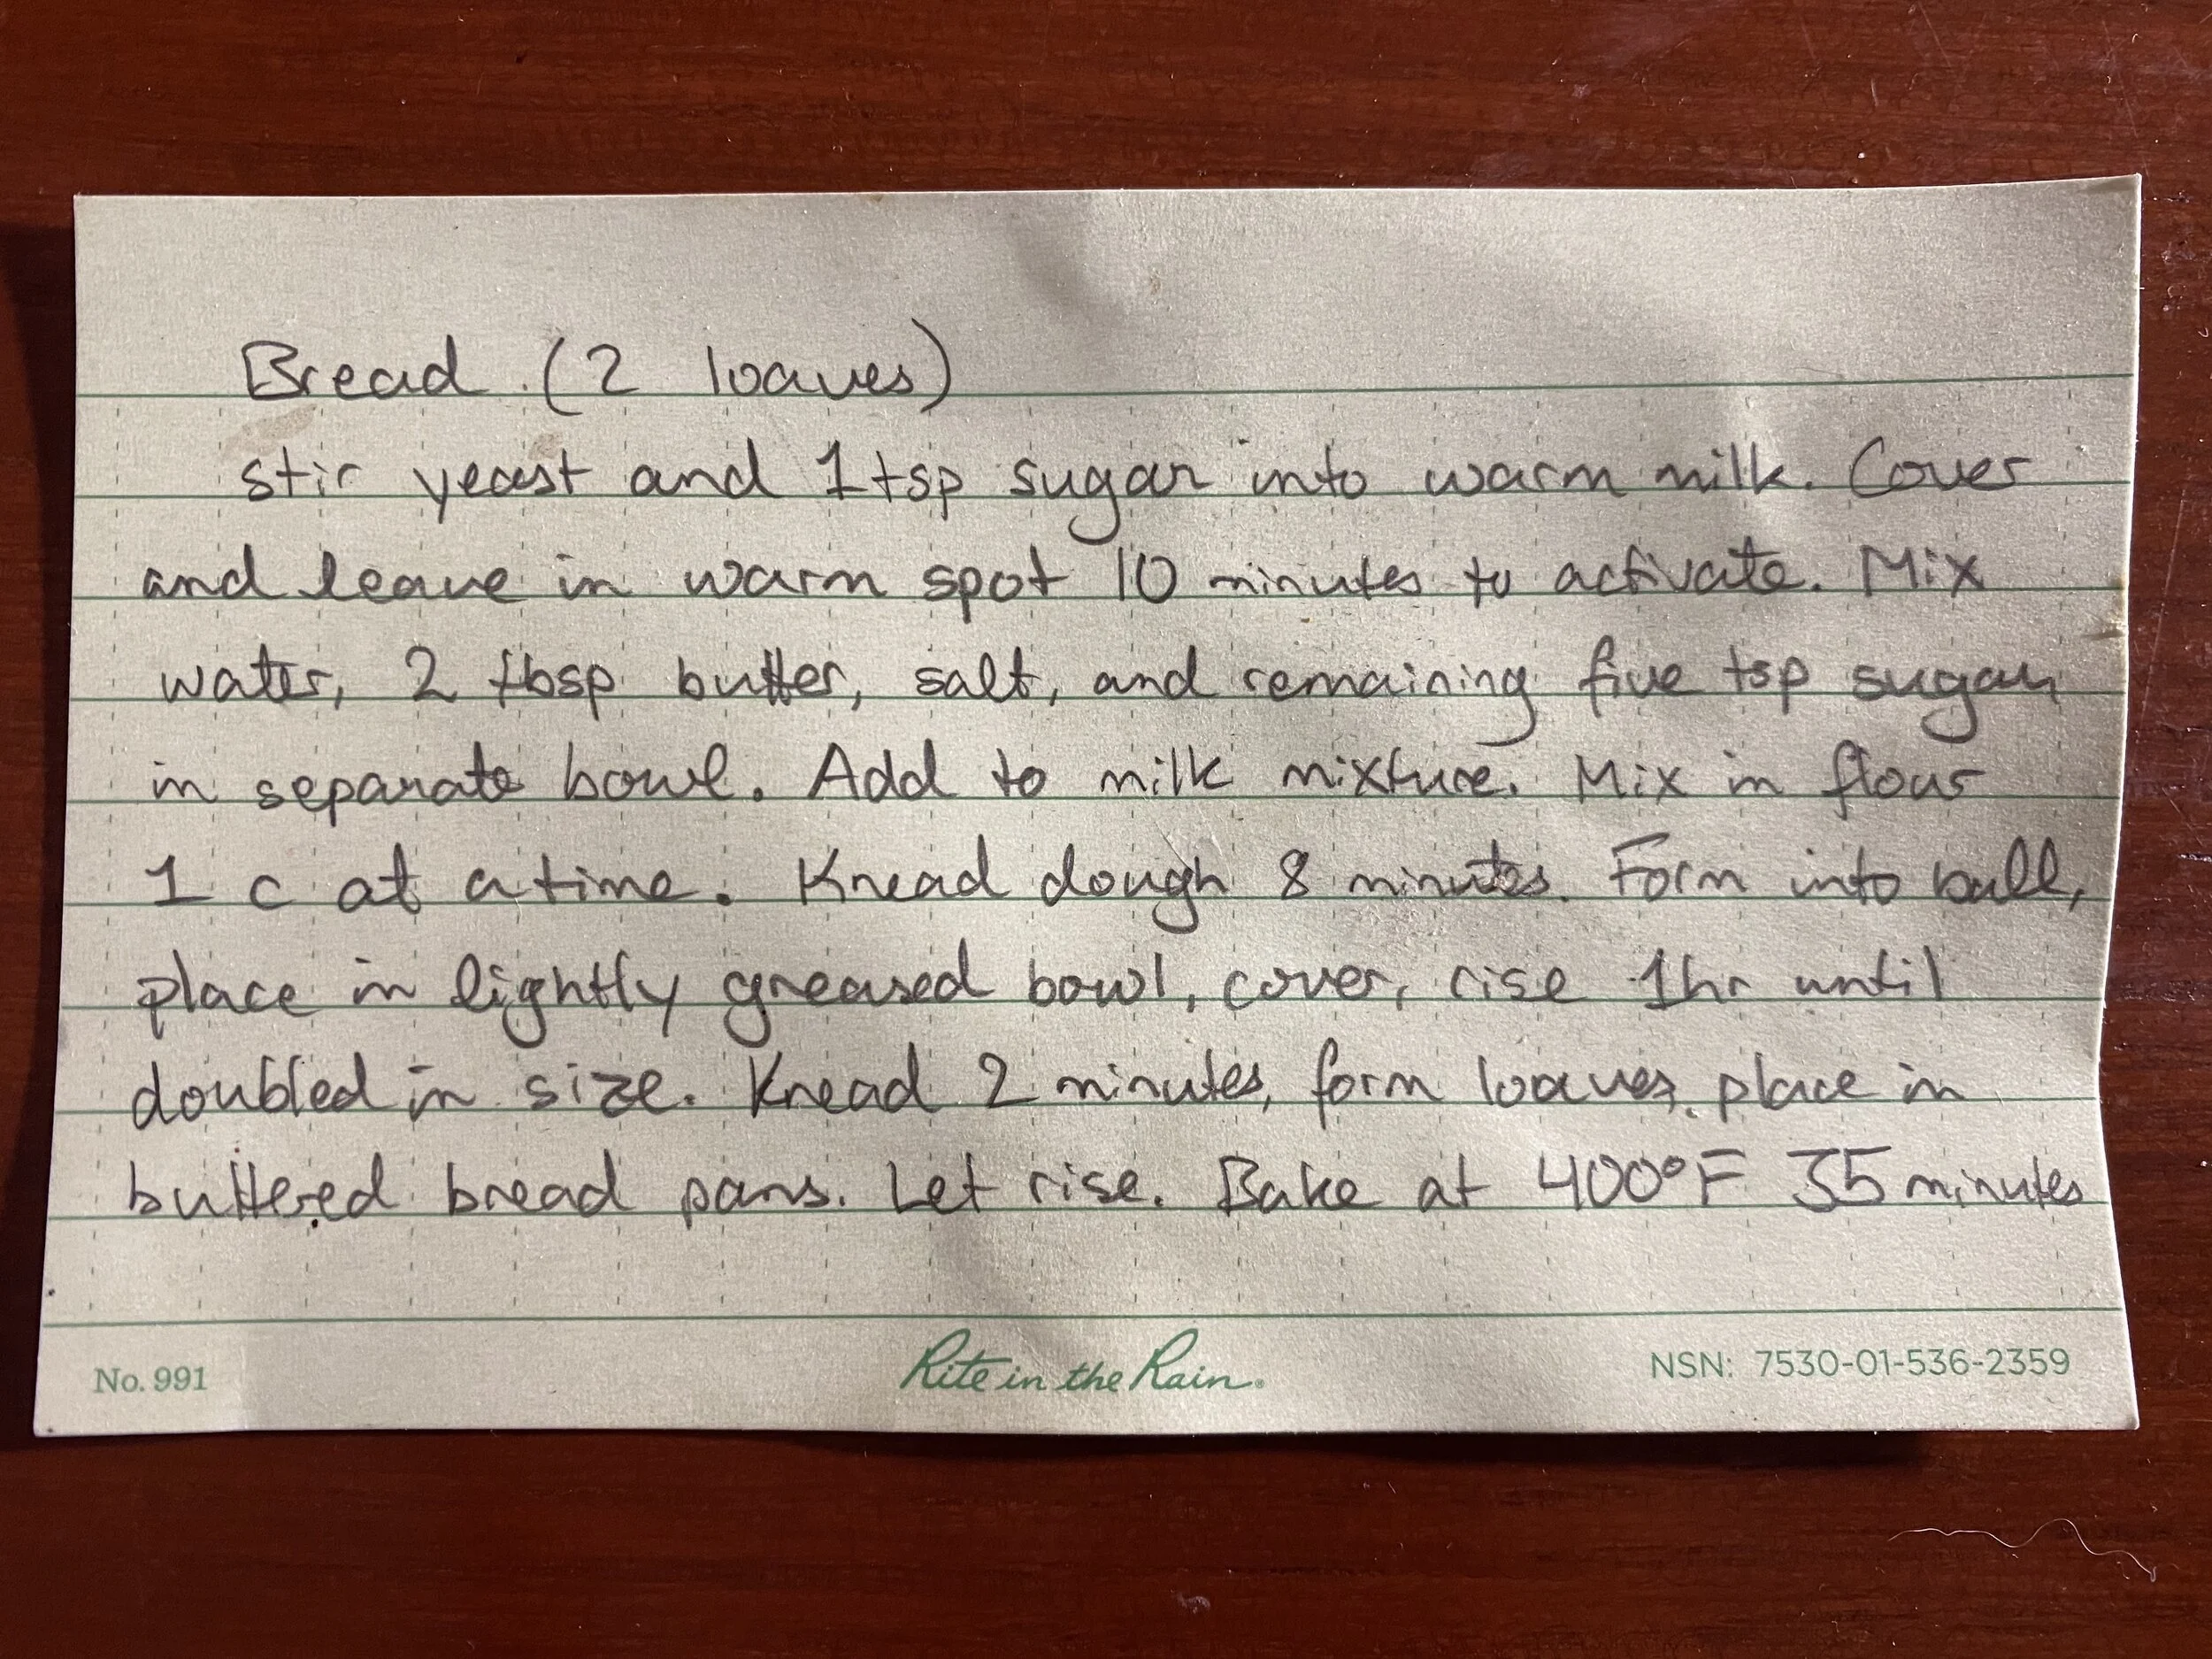 Bread (2 loaves)
stir yeast and 1 tsp sugar into warm milk. Cover
and leave in warm spot 10 minutes to activate. Mix
water, 2 tbsp butter, salt, and remaining five tsp sugar
in separate bowl. Add to milk mixture. Mix in flour
1 c at a time. Knead dough 8 minutes. Form into ball,
place in lightly greased bowl, cover, rise 1hr until
doubled in size. Knead 2 minutes, form loaves, place in
buttered bread pans. Let rise. Bake at 400°F 35 minutes
No. 991 Rite in the Rain® NSN: 7530-01-536-2359